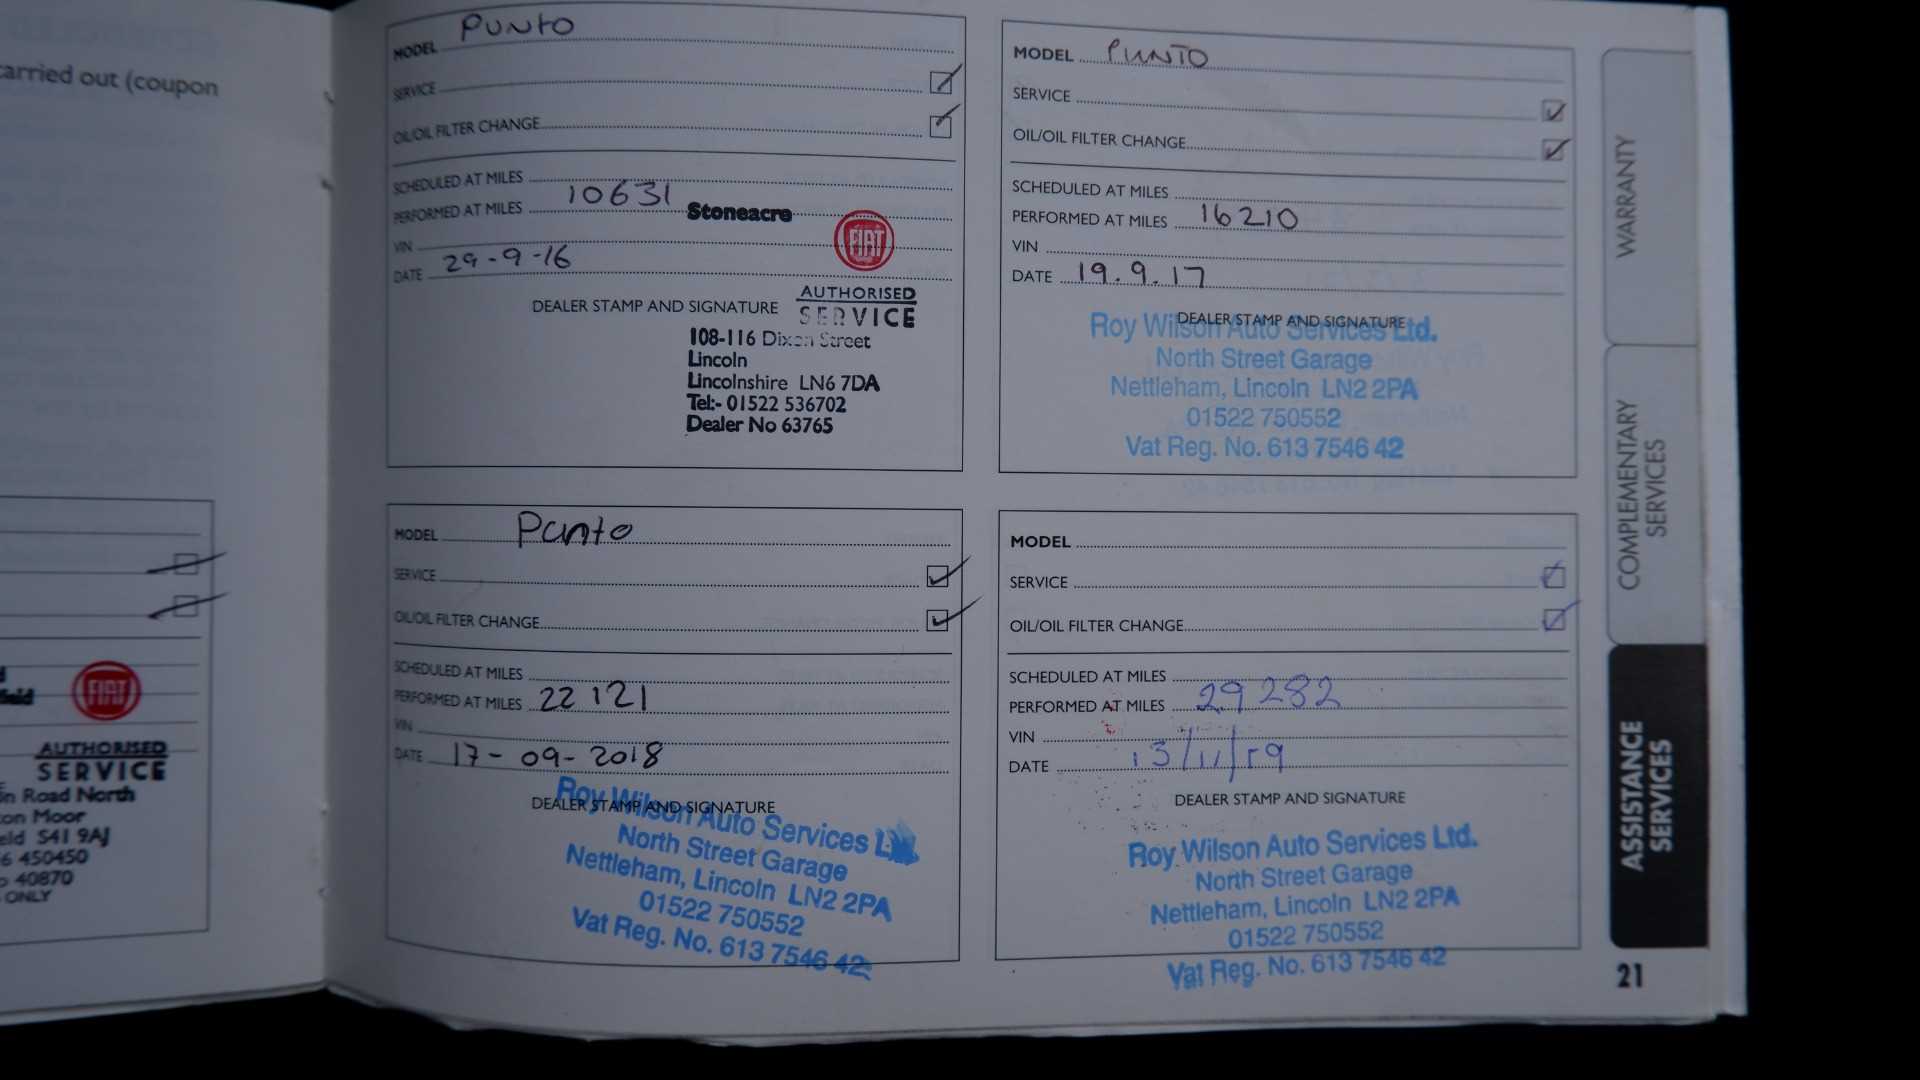 carried out (coupon
FIAT
AUTHORISED
SERVICE
Road North
Moor
S41 9AJ
6 450450
40870
ONLY
MODEL Punto
SERVICE
OIL/OIL FILTER CHANGE
SCHEDULED AT MILES
PERFORMED AT MILES 10631
VIN
DATE 29-9-16
DEALER STAMP AND SIGNATURE
Stoneacre
FIAT
AUTHORISED
SERVICE
108-116 Dixon Street
Lincoln
Lincolnshire LN6 7DA
Tel:- 01522 536702
Dealer No 63765
MODEL PUNTO
SERVICE
OIL/OIL FILTER CHANGE
SCHEDULED AT MILES
PERFORMED AT MILES 16210
VIN
DATE 19.9.17
DEALER STAMP AND SIGNATURE
Roy Wilson Auto Services Ltd.
North Street Garage
Nettleham, Lincoln LN2 2PA
01522 750552
Vat Reg. No. 613 7546 42
MODEL Punto
SERVICE
OIL/OIL FILTER CHANGE
SCHEDULED AT MILES
PERFORMED AT MILES 22121
VIN
DATE 17-09-2018
DEALER STAMP AND SIGNATURE
Roy Wilson Auto Services
North Street Garage
Nettleham, Lincoln LN2 2PA
01522 750552
Vat Reg. No. 613 7546 42
MODEL
SERVICE
OIL/OIL FILTER CHANGE
SCHEDULED AT MILES
PERFORMED AT MILES 29282
VIN
DATE 13/11/19
DEALER STAMP AND SIGNATURE
Roy Wilson Auto Services Ltd.
North Street Garage
Nettleham, Lincoln LN2 2PA
01522 750552
Vat Reg. No. 613 7546 42
WARRANTY
COMPLEMENTARY
SERVICES
ASSISTANCE
SERVICES
21